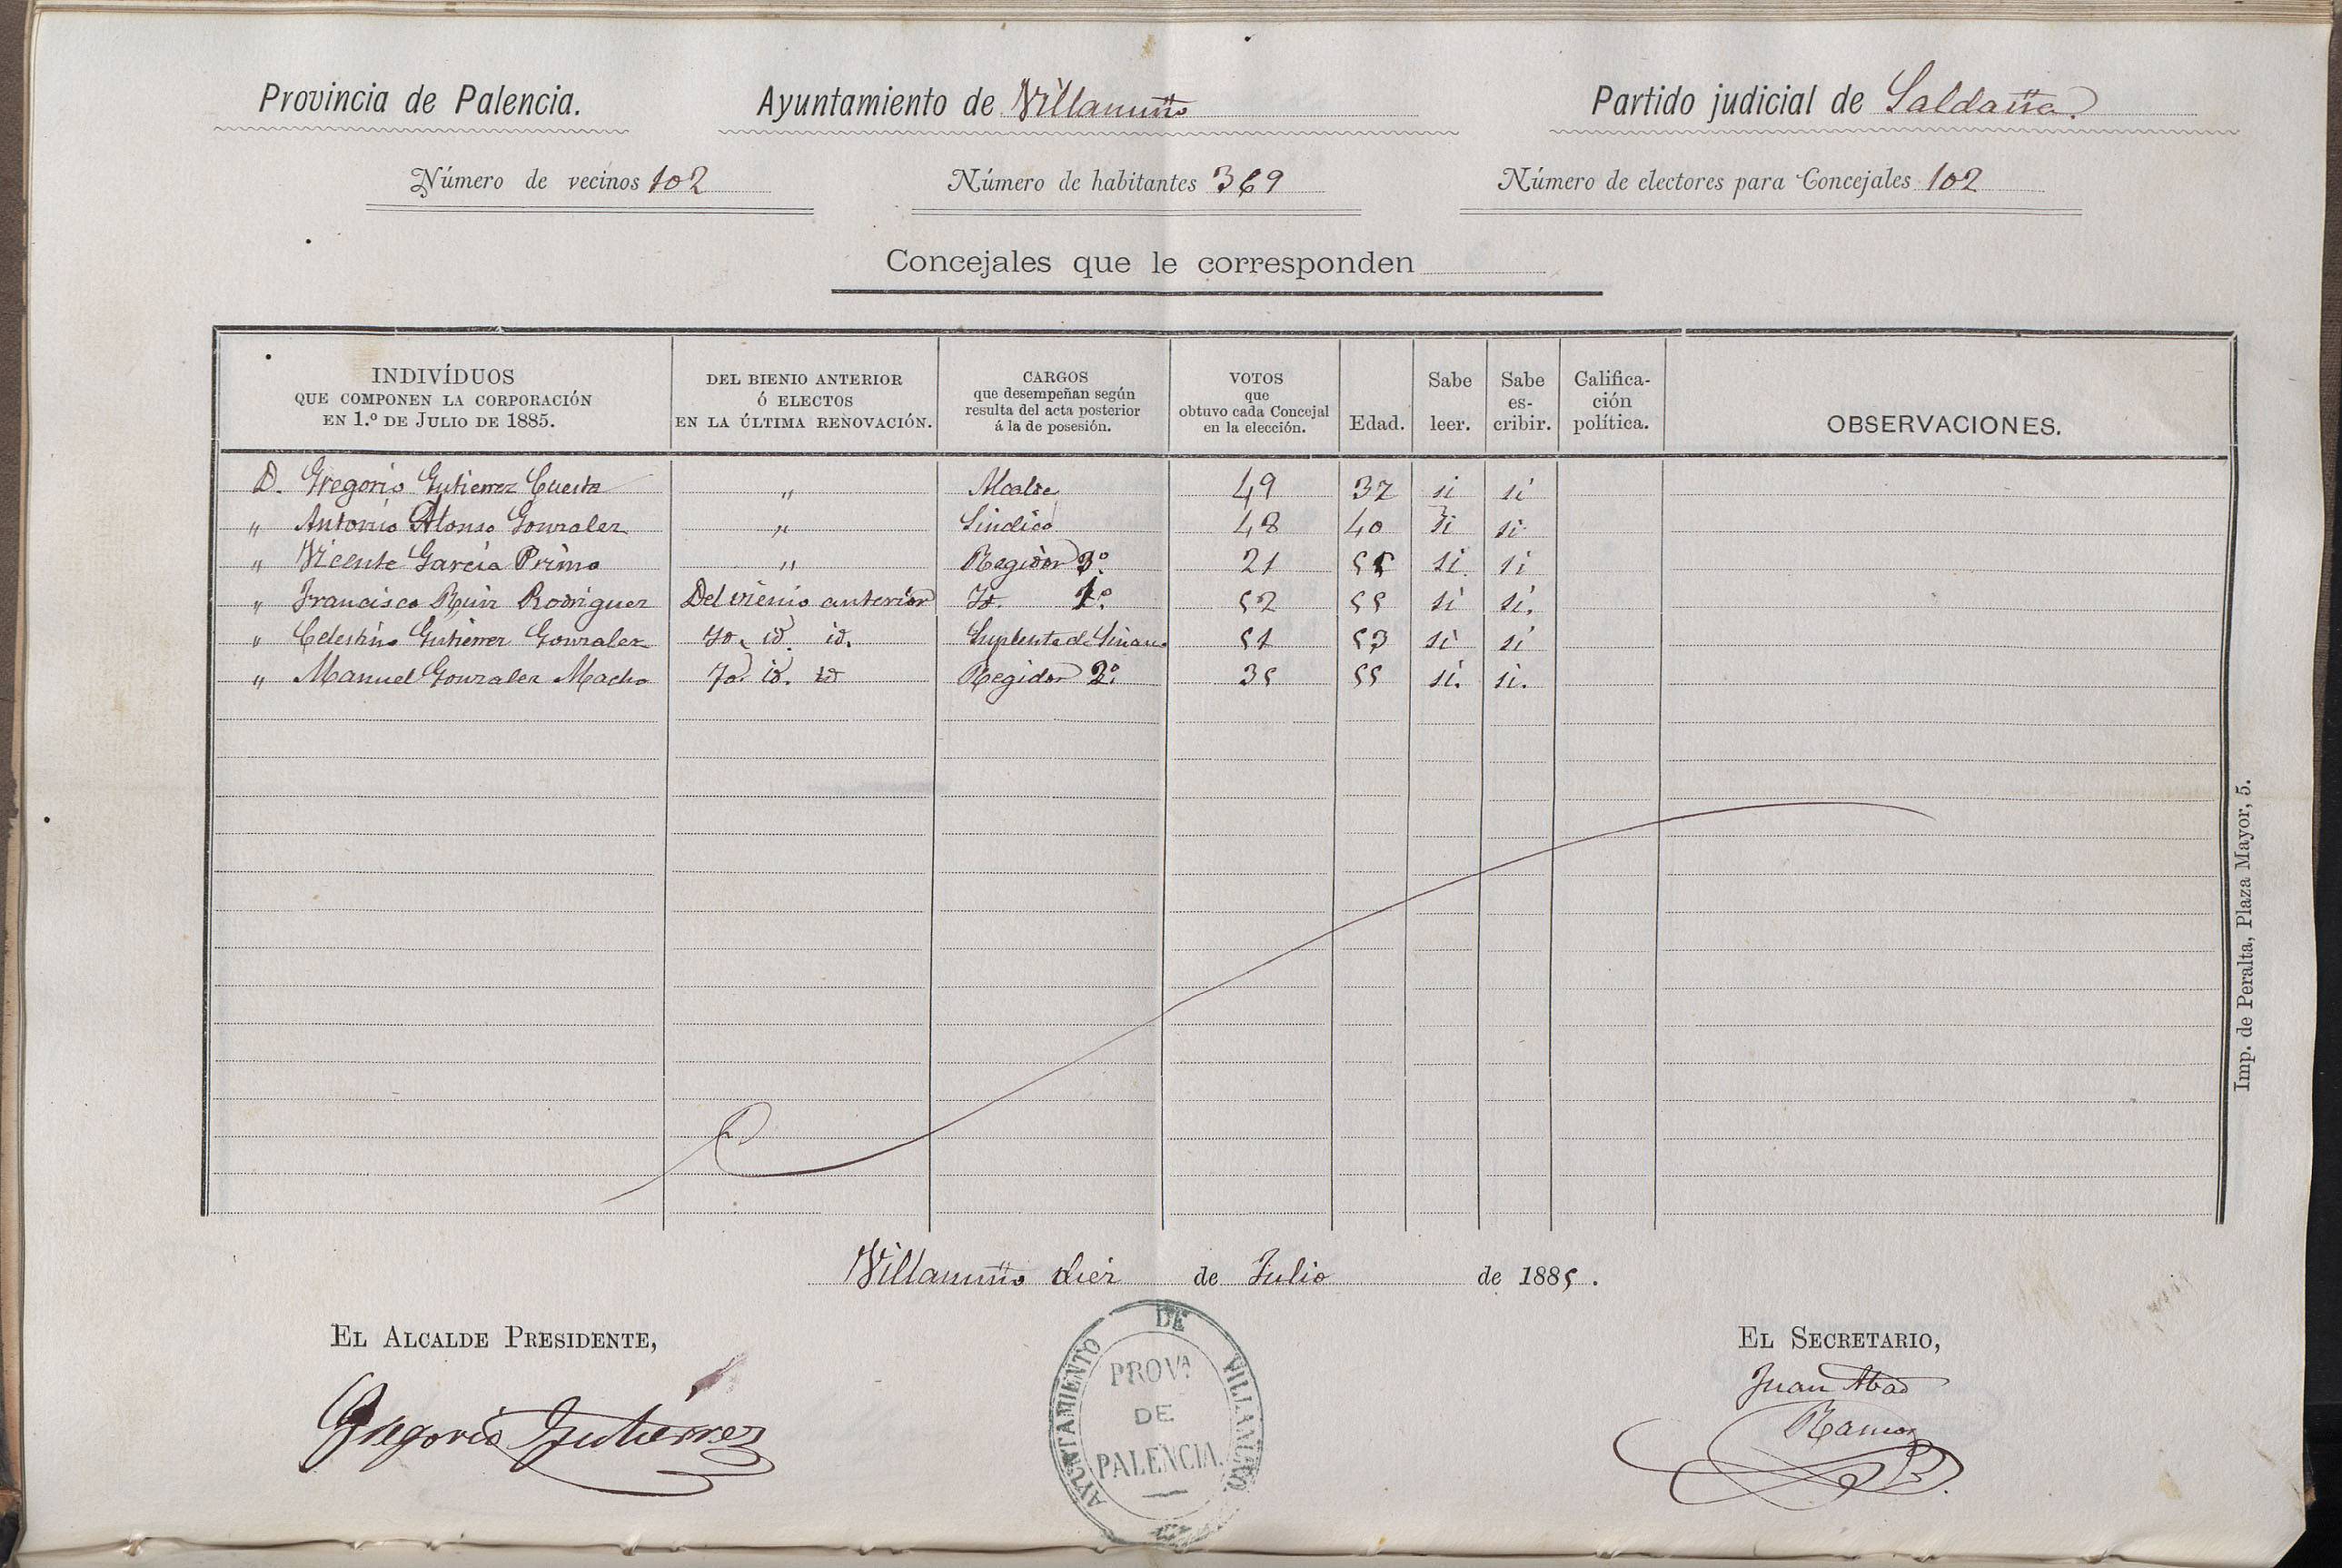 Provincia de Palencia. Ayuntamiento de Villanuño Partido judicial de Saldaña.
Número de vecinos 102 Número de habitantes 369 Número de electores para Concejales 102
Concejales que le corresponden
INDIVÍDUOS
QUE COMPONEN LA CORPORACIÓN
EN 1.º DE JULIO DE 1885.
DEL BIENIO ANTERIOR
Ó ELECTOS
EN LA ÚLTIMA RENOVACIÓN.
CARGOS
que desempeñan según
resulta del acta posterior
á la de posesión.
VOTOS
que
obtuvo cada Concejal
en la elección.
Edad.
Sabe
leer.
Sabe
es-
cribir.
Califica-
ción
política.
OBSERVACIONES.
D. Gregorio Gutierrez Cuesta " Alcalde 49 37 si si
" Antonio Alonso Gonzalez " Sindico 48 40 si si
" Vicente Garcia Primo " Regidor 3º 21 si si
" Francisco Ruiz Rodriguez Del vienio anterior Id. 1º 52 55 si si.
" Celestino Gutierrez Gonzalez Id. id. id. Suplente de 51 53 si si
" Manuel Gonzalez Macho Id. id. id Regidor 2º 35 55 si. si.
Villanuño diez de Julio de 1885.
EL ALCALDE PRESIDENTE,
Gregorio Gutierrez
AYUNTAMIENTO DE VILLANUÑO.
PROVª
DE
PALENCIA.
EL SECRETARIO,
Juan Abad
Ramos
Imp. de Peralta, Plaza Mayor, 5.